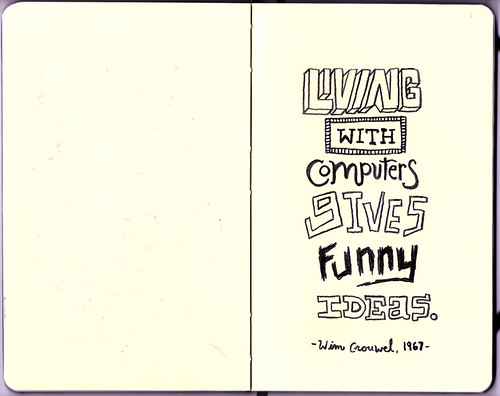 LIVING
WITH
Computers
gIVES
Funny
IDEas.
-Wim Crouwel, 1967-